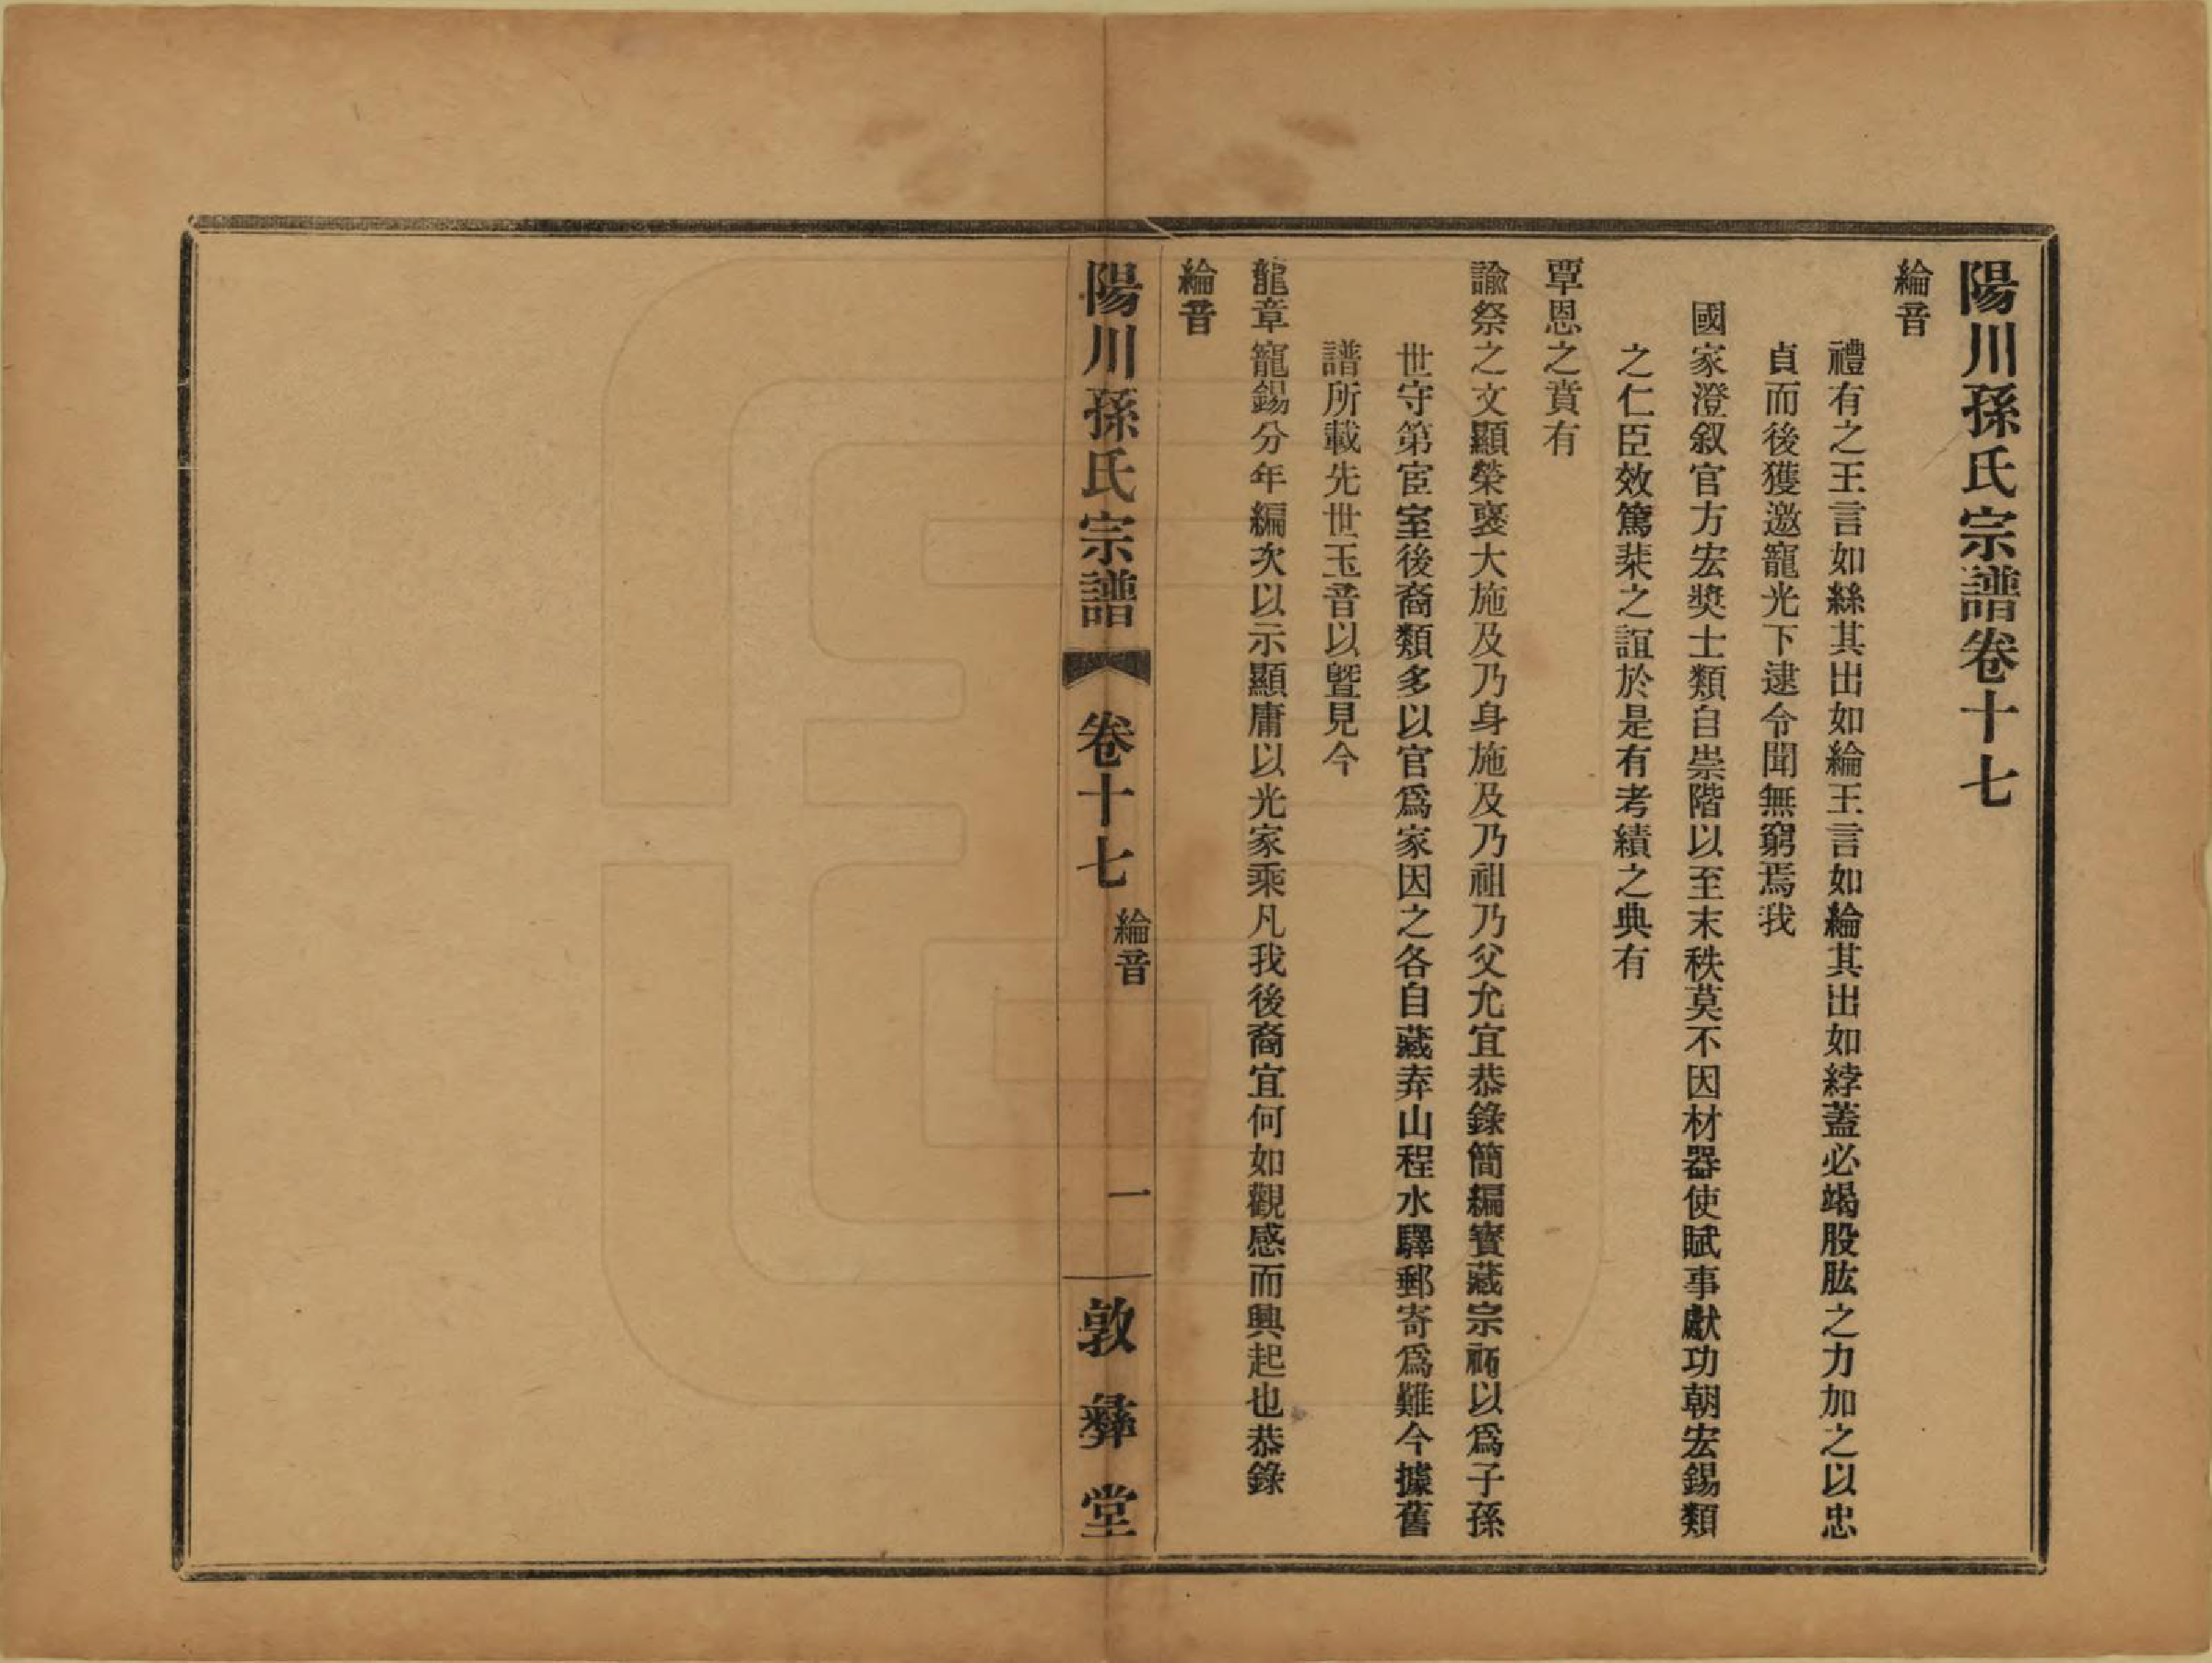 陽川孫氏宗譜卷十七
綸音
禮有之王言如絲其出如綸王言如綸其出如綍蓋必竭股肱之力加之以忠
貞而後獲邀寵光下逮令聞無窮焉我
國家澄叙官方宏奬士類自崇階以至末秩莫不因材器使賦事獻功朝宏錫類
之仁臣效篤棐之誼於是有考績之典有
覃恩之賁有
諭祭之文顯榮褒大施及乃身施及乃祖乃父允宜恭錄簡編寳藏宗祏以爲子孫
世守第宦室後裔類多以官爲家因之各自藏弆山程水驛郵寄爲難今據舊
譜所載先世玉音以曁見今
龍章寵錫分年編次以示顯庸以光家乘凡我後裔宜何如觀感而興起也恭錄
綸音
陽川孫氏宗譜
卷十七
綸音
一
敦彝堂